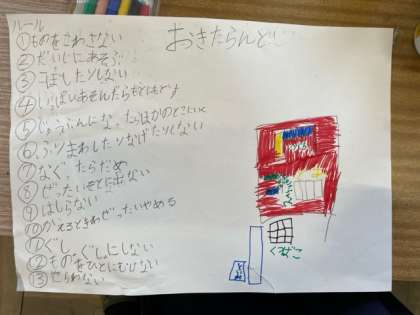 ルール
おきたらんど
①ものをこわさない
②だいじにあそぶ
③こぼしたりしない
④いっぱいあそんだらもとにもどす
⑤じゅうぶんになったらほかのところにいく
⑥ふりまわしたりなげたりしない
⑦なくしたらだめ
⑧ぜったいそとにでない
⑨はしらない
⑩かえるときわぜったいやめる
⑪ぐしゃぐしゃにしない
⑫ものをひとにむけない
⑬さわらない